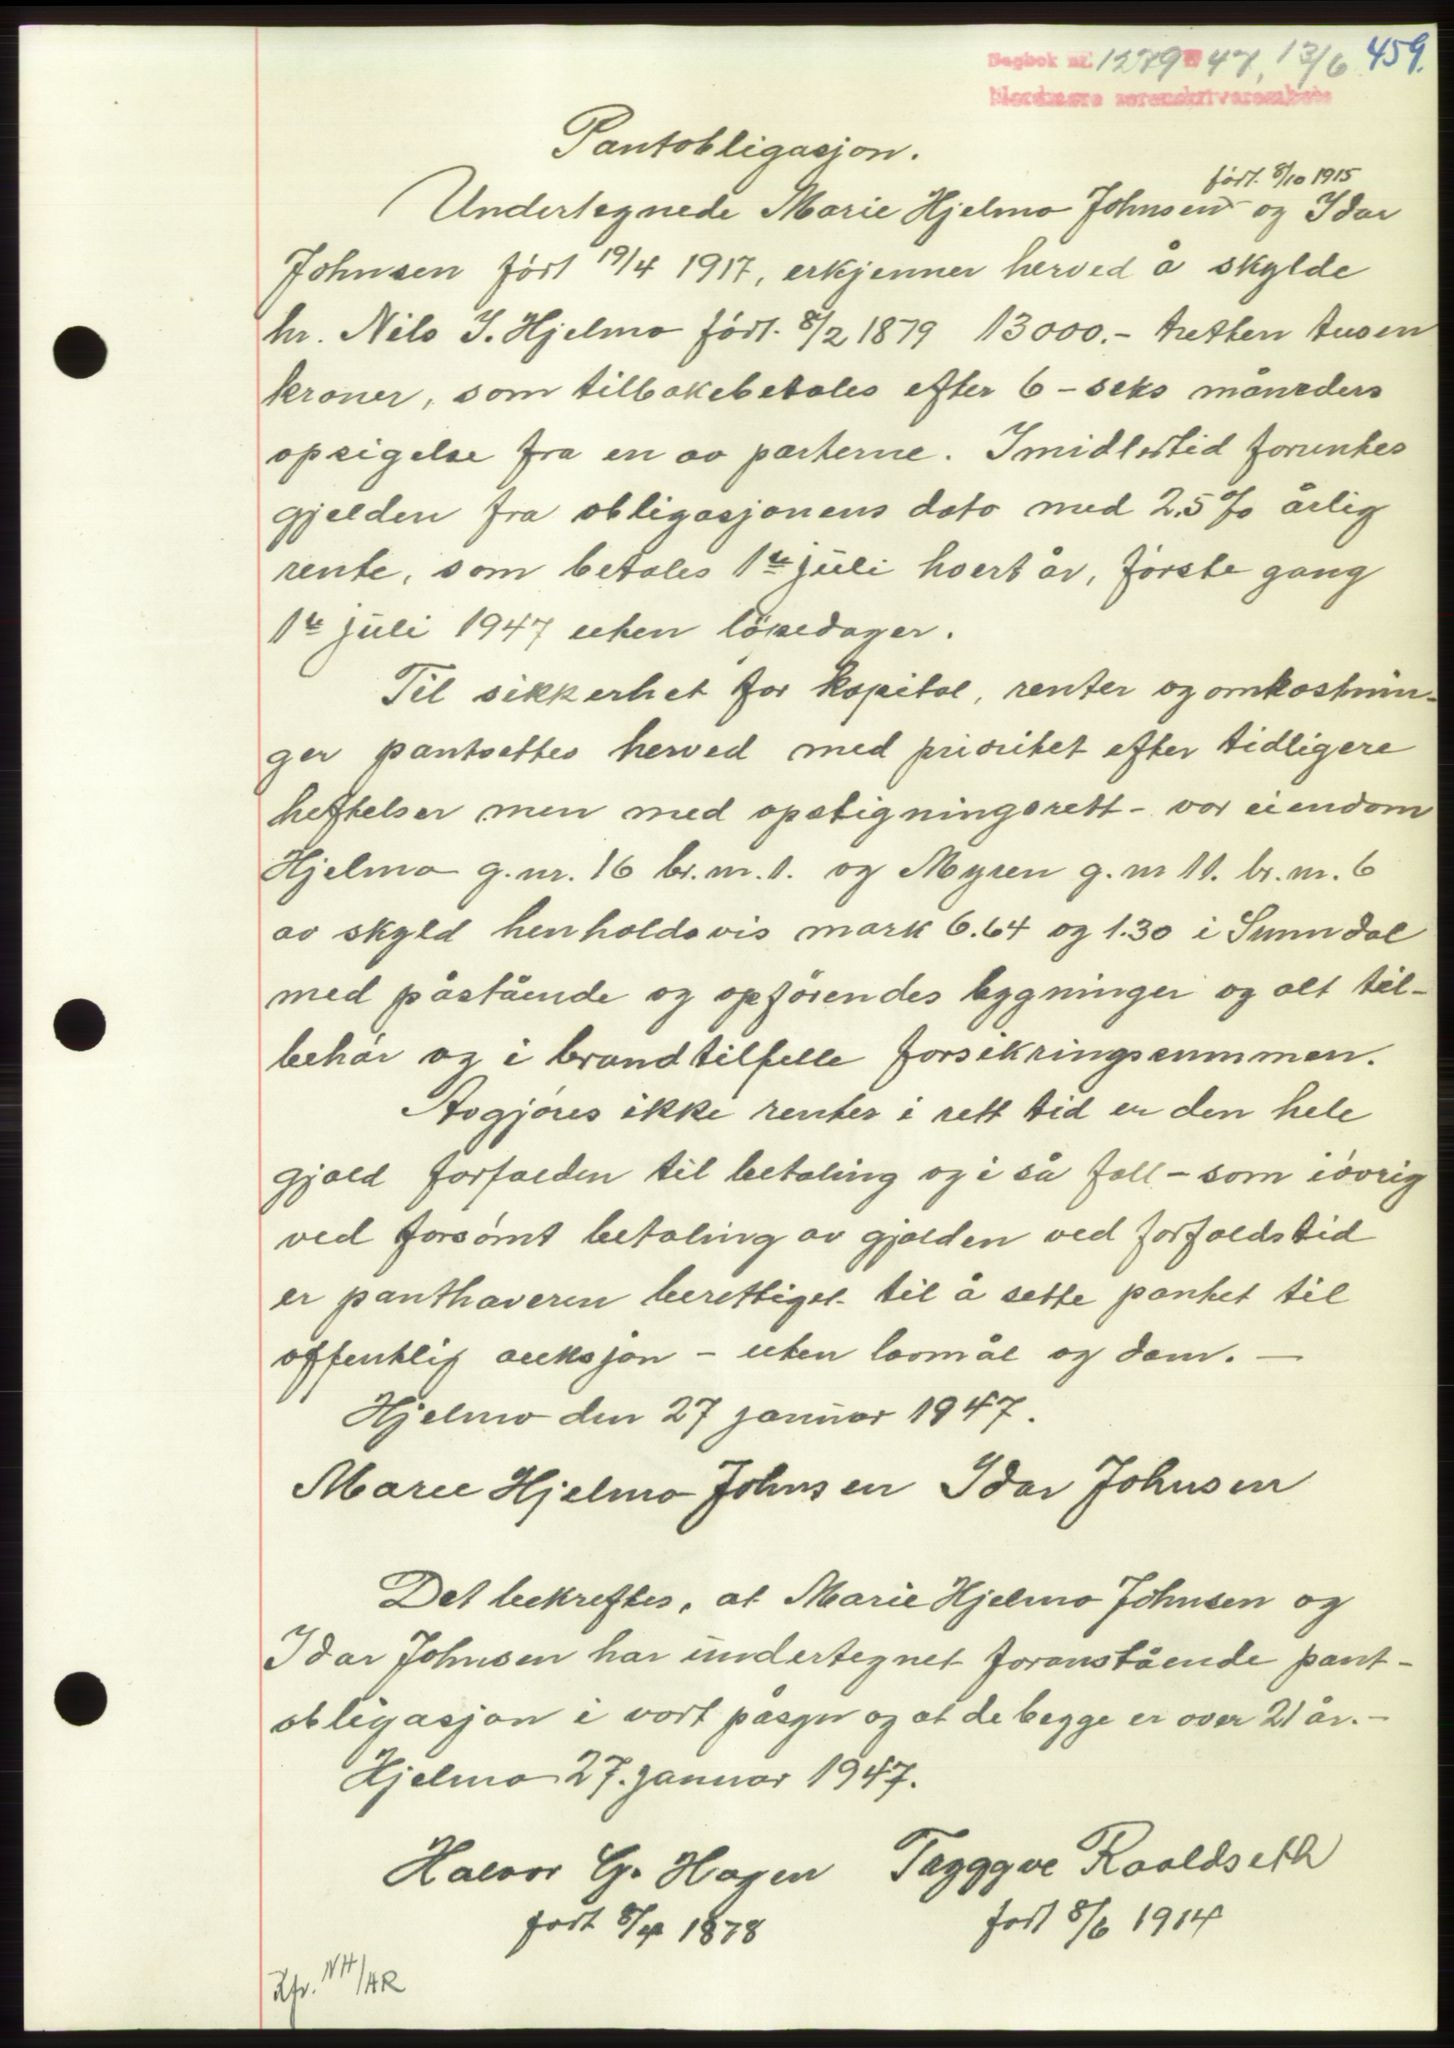 Dagbok nr. 1279 47, 13/6 459.
Nordmøre sorenskriverembete
Pantobligasjon.
født 8/10 1915
Undertegnede Marie Hjelmo Johnsen og Idar
Johnsen født 19/4 1917, erkjenner herved å skylde
hr. Nils I. Hjelmo født 8/2 1879 13000.- tretten tusen
kroner, som tilbakebetales efter 6 - seks måneders
opsigelse fra en av parterne. Imidlertid forrentes
gjelden fra obligasjonens dato med 2.5% årlig
rente, som betales 1ste juli hvert år, første gang
1ste juli 1947 uten løpedager.
Til sikkerhet for kapital, renter og omkostnin-
ger pantsettes herved med prioritet efter tidligere
heftelser men med opstigningsrett - vor eiendom
Hjelmo g.nr. 16 br.nr. 1. og Myren g.nr 11. br.nr. 6
av skyld henholdsvis mark 6.64 og 1.30 i Sunndal
med påstående og opførendes bygninger og alt til-
behør og i brandtilfelle forsikringssummen.
Avgjøres ikke renter i rett tid er den hele
gjæld forfalden til betaling og i så fall - som iøvrig
ved forsømt betaling av gjælden ved forfaldstid
er panthaveren berettiget til å sette pantet til
offentlig auksjon - uten lovmål og dom. —
Hjelmo den 27 januar 1947.
Marie Hjelmo Johnsen Idar Johnsen
Det bekreftes, at Marie Hjelmo Johnsen og
Idar Johnsen har undertegnet foranstående pant-
obligasjon i vort påsyn og at de begge er over 21 år. -
Hjelmo 27. januar 1947.
Halvor G. Hagen Tryggve Roaldseth
født 8/4 1878 født 8/6 1914
Kfr. NH/AR